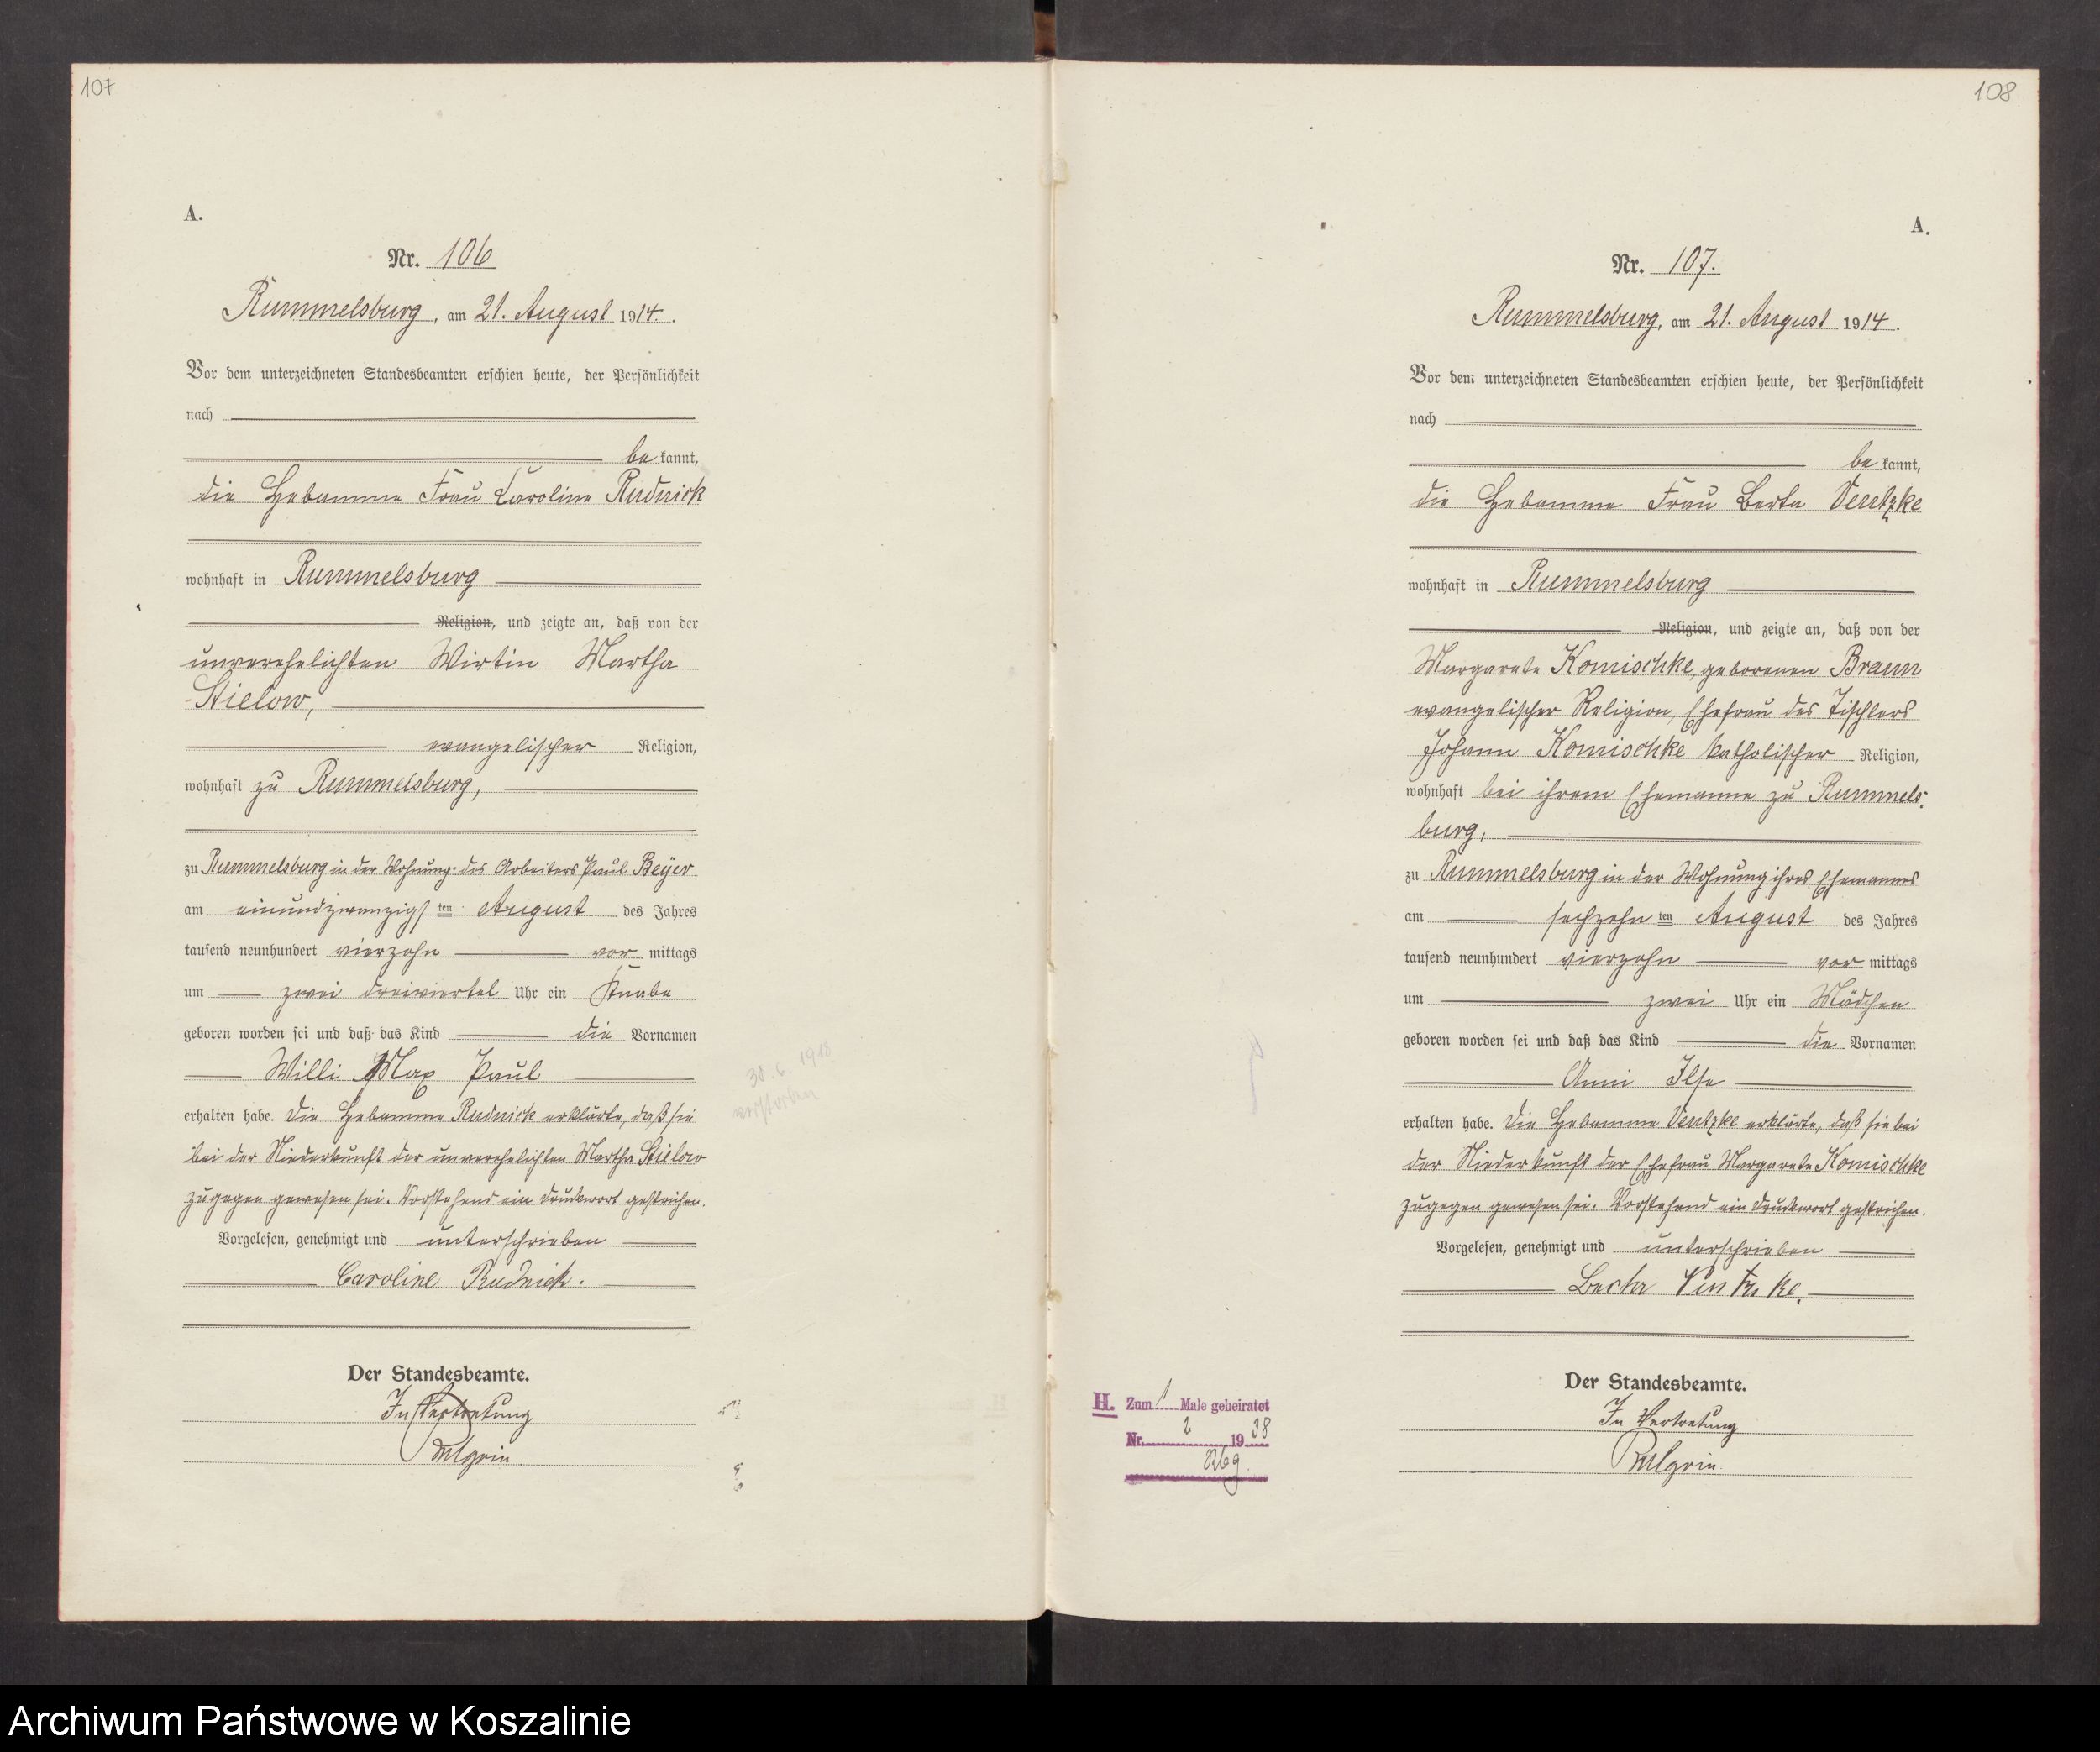 107
A.
Nr. 106
Rummelsburg, am 21. August 1914.
Vor dem unterzeichneten Standesbeamten erschien heute, der Persönlichkeit
nach
be kannt,
die Hebamme Frau Caroline Rudnick
wohnhaft in Rummelsburg
Religion, und zeigte an, daß von der
unverehelichten Wirtin Martha
Stielow,
evangelischer Religion,
wohnhaft zu Rummelsburg,
zu Rummelsburg in der Wohnung des Arbeiters Paul Beyer
am einundzwanzigsten August des Jahres
tausend neunhundert vierzehn vor mittags
um zwei dreiviertel Uhr ein Knabe
geboren worden sei und daß das Kind die Vornamen
Willi Max Paul
erhalten habe. Die Hebamme Rudnick erklärte, daß sie
bei der Niederkunft der unverehelichten Martha Stielow
zugegen gewesen sei. Vorstehend ein Druckwort gestrichen.
Vorgelesen, genehmigt und unterschrieben
Caroline Rudnick.
Der Standesbeamte.
In Vertretung
30.6.1918
verstorben
108
A.
Nr. 107.
Rummelsburg, am 21. August 1914.
Vor dem unterzeichneten Standesbeamten erschien heute, der Persönlichkeit
nach
be kannt,
die Hebamme Frau Berta Ventzke
wohnhaft in Rummelsburg
Religion, und zeigte an, daß von der
Margarete Komischke, geborenen Braun
evangelischer Religion, Ehefrau des Tischlers
Johann Komischke katholischer Religion,
wohnhaft bei ihrem Ehemanne zu Rummels-
burg,
zu Rummelsburg in der Wohnung ihres Ehemannes
am sechzehnten August des Jahres
tausend neunhundert vierzehn vor mittags
um zwei Uhr ein Mädchen
geboren worden sei und daß das Kind die Vornamen
Anni Ilse
erhalten habe. Die Hebamme Ventzke erklärte, daß sie bei
der Niederkunft der Ehefrau Margarete Komischke
zugegen gewesen sei. Vorstehend ein Druckwort gestrichen.
Vorgelesen, genehmigt und unterschrieben
Berta Ventzke.
Der Standesbeamte.
In Vertretung
H. Zum 1 Male geheiratet
Nr. 2 1938
Rbg.
Archiwum Państwowe w Koszalinie